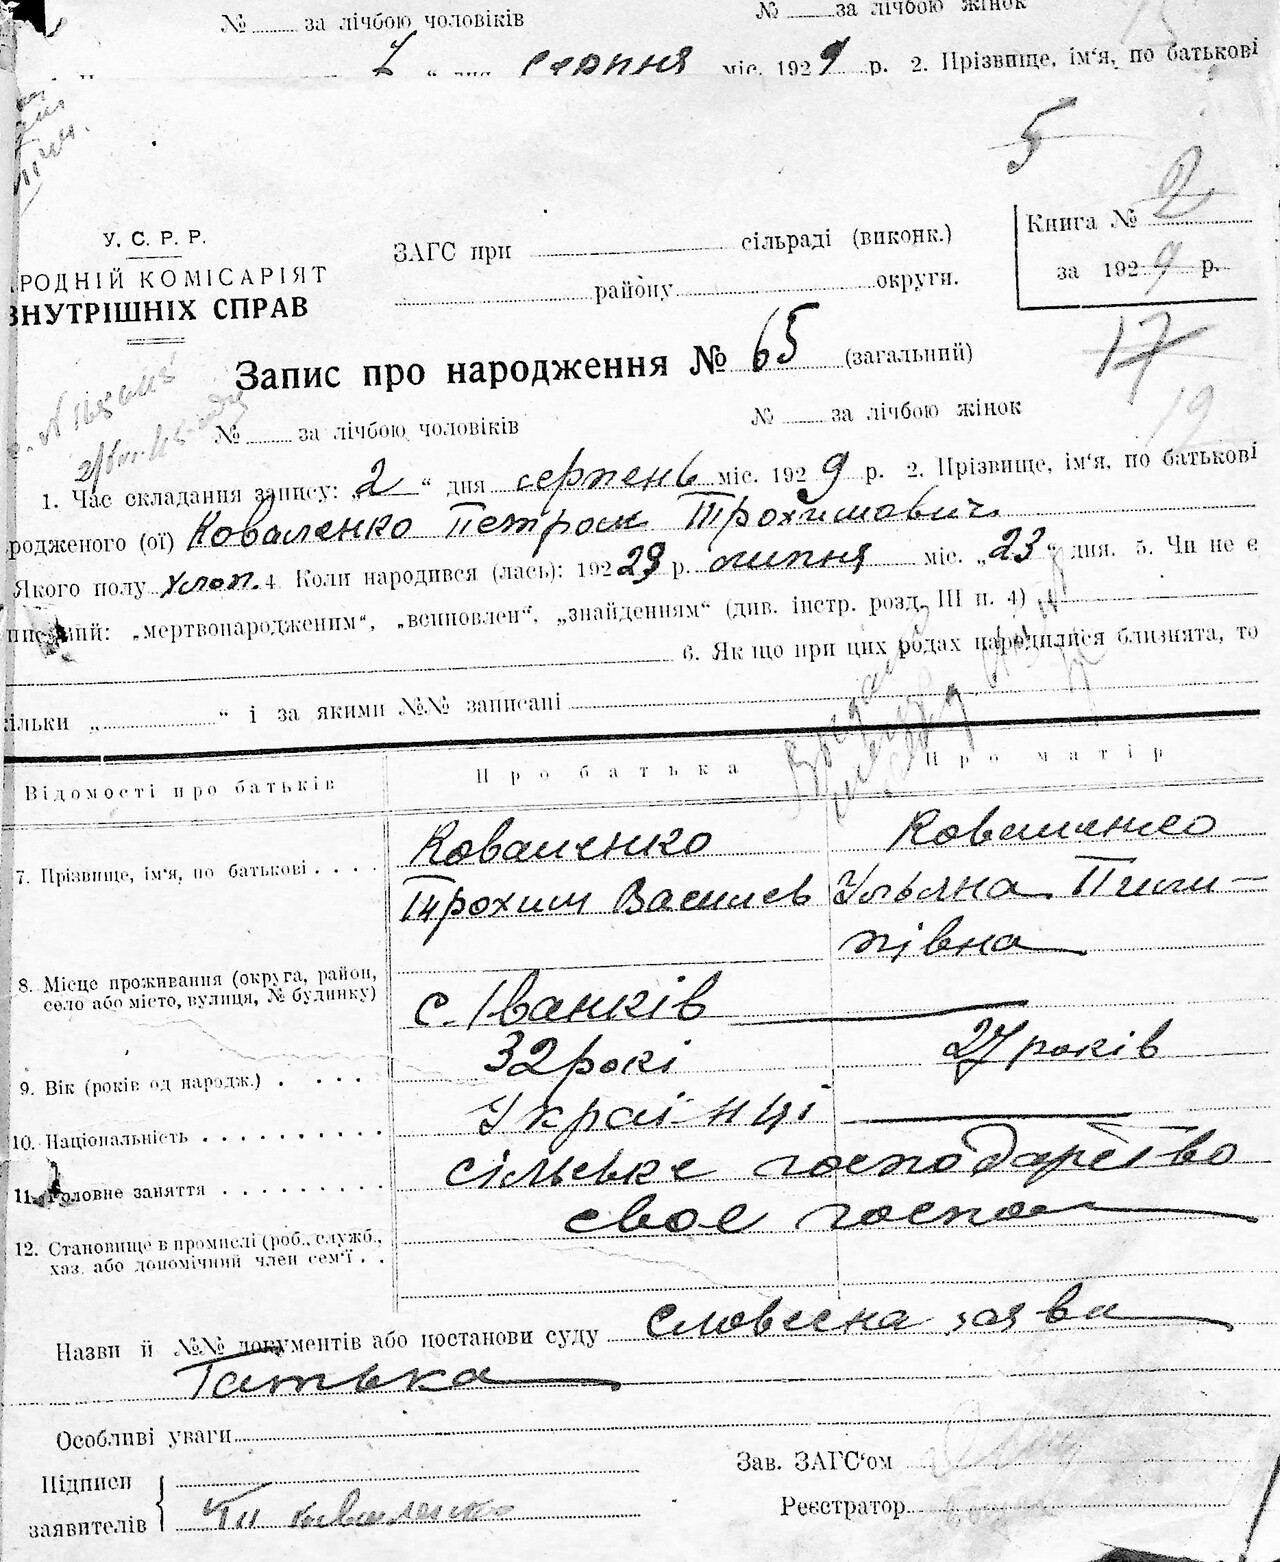 № за лічбою чоловіків № за лічбою жінок
7 “ дня серпня міс. 1929 р. 2. Прізвище, ім‘я, по батькові
5
У. С. Р. Р.
РОДНІЙ КОМІСАРІЯТ
ВНУТРІШНІХ СПРАВ
ЗАГС при сільраді (виконк.)
району округи.
Книга № 2
за 1929 р.
Запис про народження № 65 (загальний)
17
19
№ за лічбою чоловіків № за лічбою жінок
1. Час складання запису: „2“ дня серпень міс. 1929 р. 2. Прізвище, ім‘я, по батькові
родженого (ої) Коваленко Петром Трохимович
Якого полу хлоп. 4 Коли народився (лась): 192 29 р. липня міс. „23“ дня. 5. Чи не є
писаний: „мертвонародженим“, „всиновлен“, „знайденням“ (див. інстр. розд. III п. 4)
6. Якщо при цих родах народилися близнята, то
ільки „ “ і за якими №№ записані
Відомості про батьків Про батька Про матір
7. Прізвище, ім‘я, по батькові Коваленко Коваленко
Трохим Василев Ульяна Пили–
півна
8. Місце проживання (округа, район, село або місто, вулиця, № будинку) с. Іванків
9. Вік (років од народж.) 32 рокі 27 років
10. Національність Українці
11. Головне заняття сільське господарство
12. Становище в промислі (роб., служб., хаз. або допомічний член сем‘ї своє госпо
Назви й №№ документів або постанови суду словесна заява
батька
Особливі уваги
Підписи
заявителів Коваленко
Зав. ЗАГС‘ом
Реєстратор